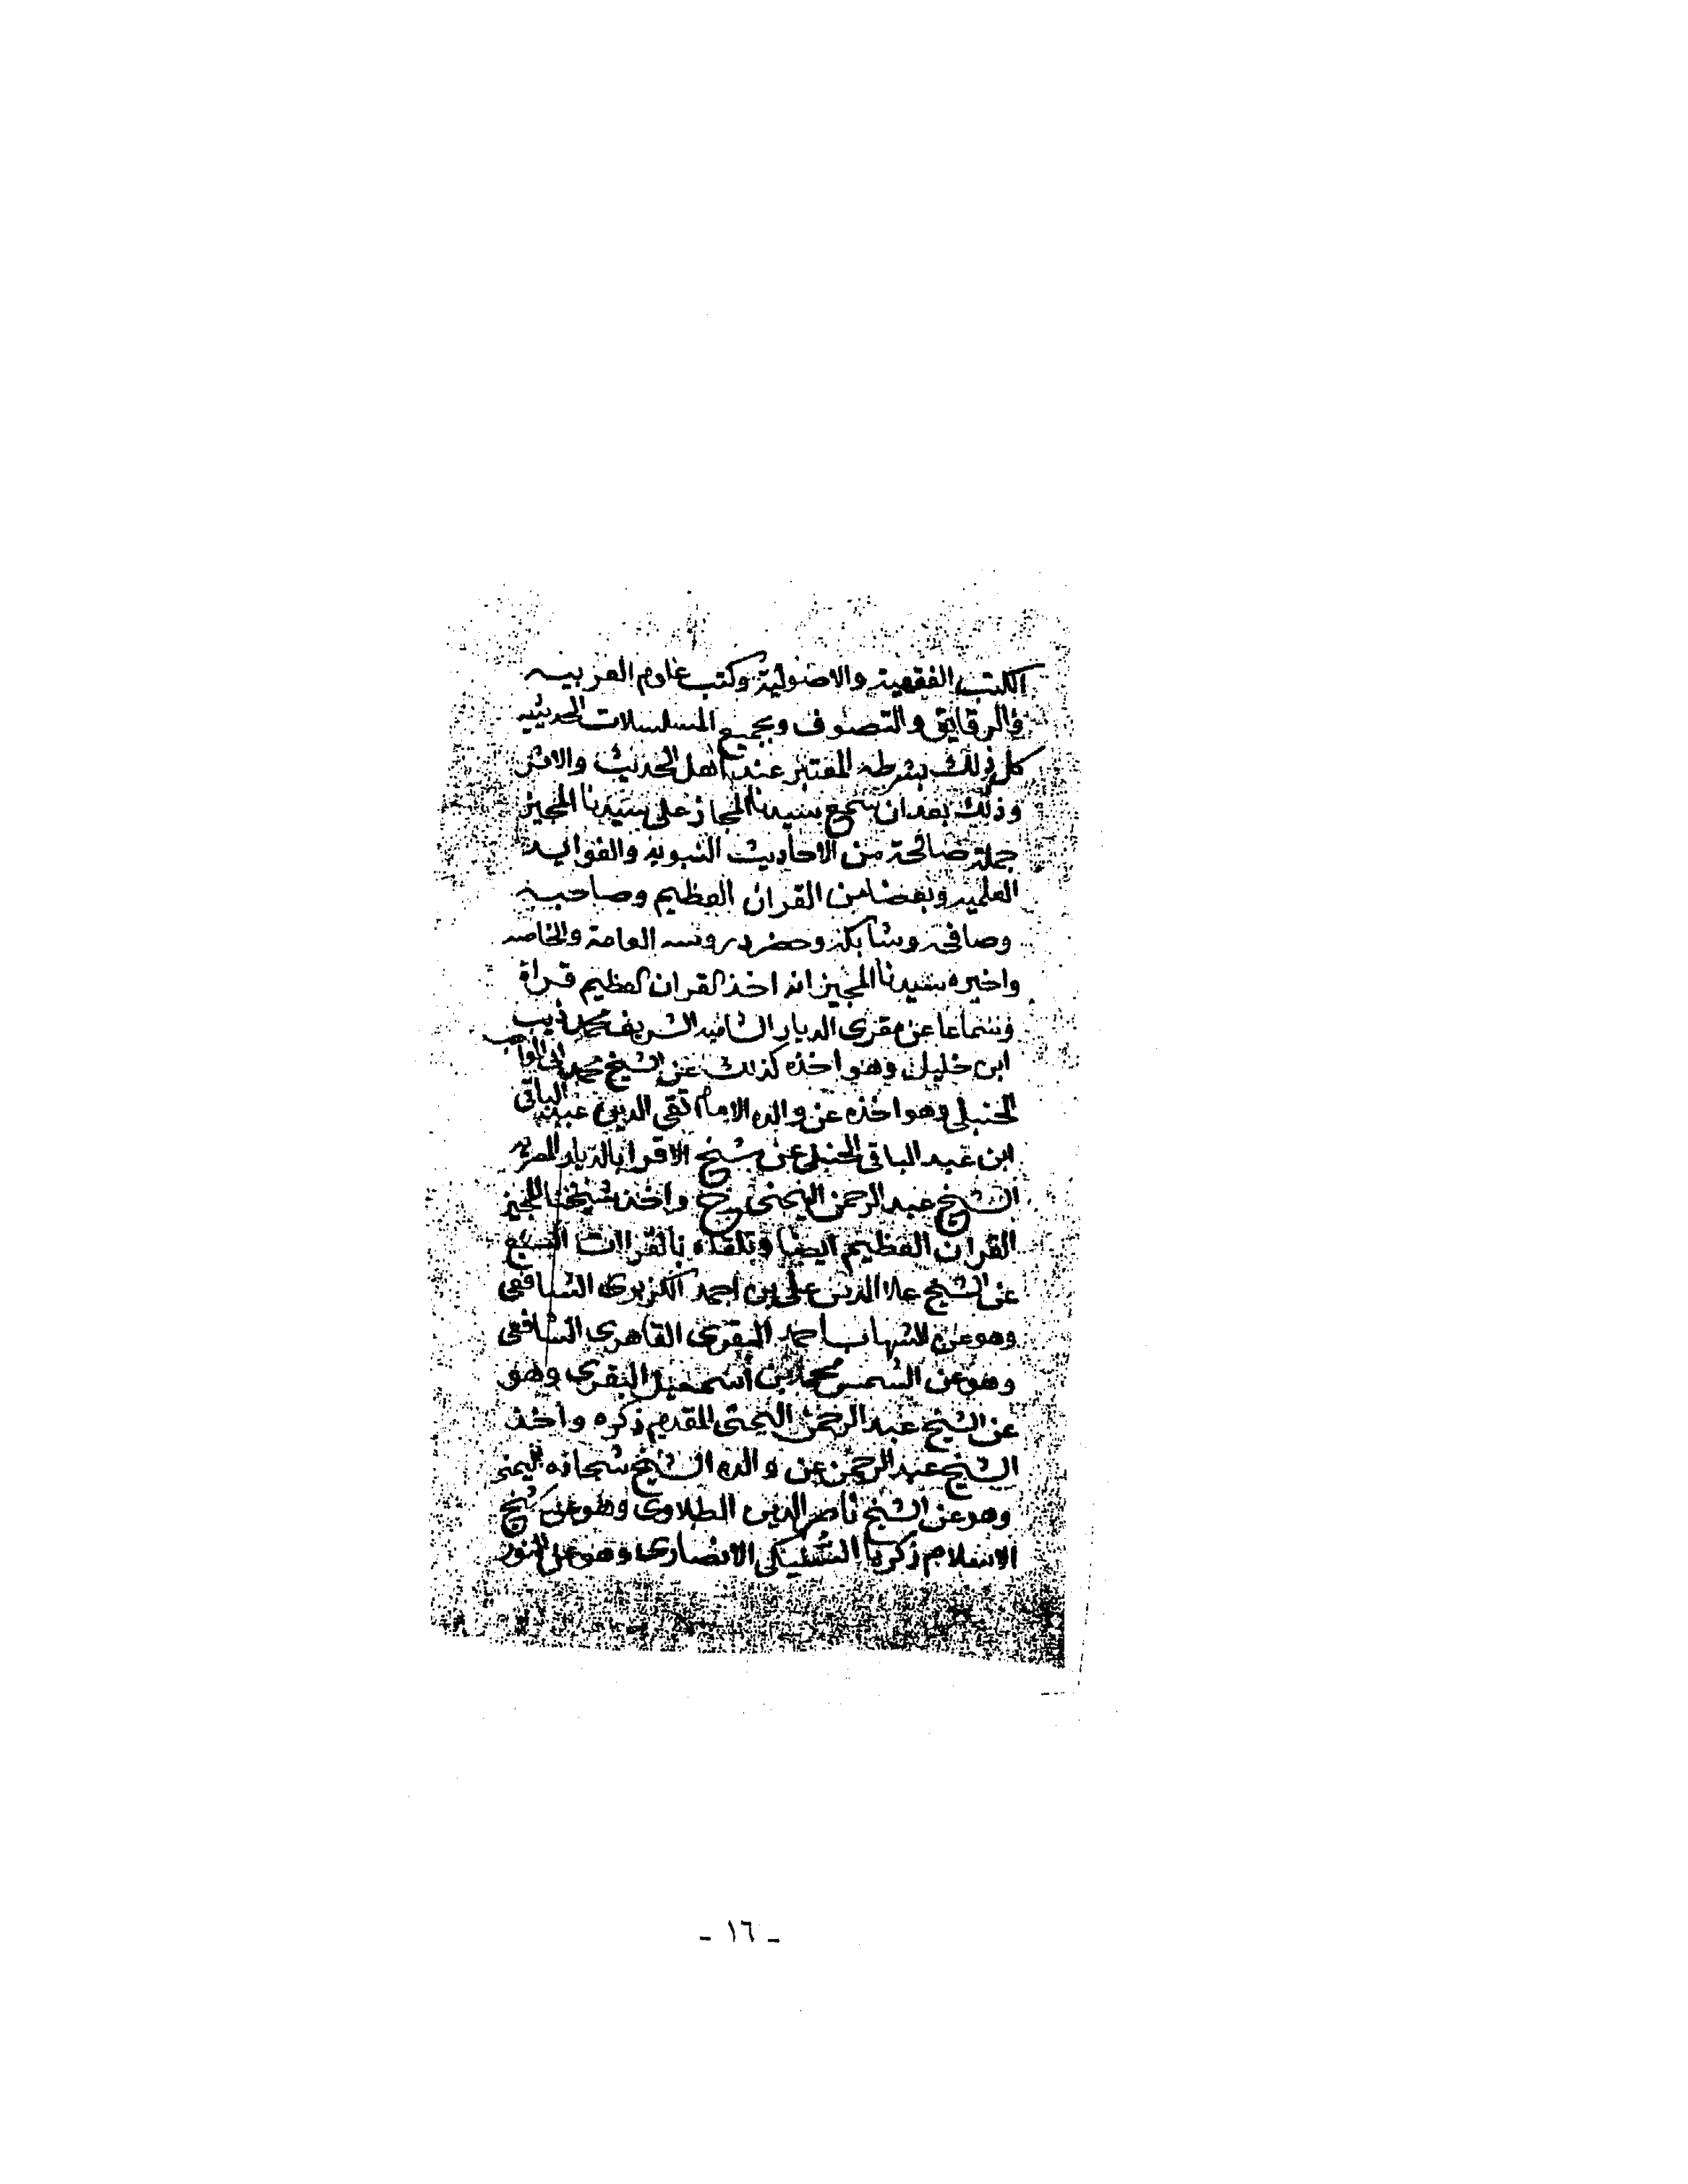 الكتب الفقهية والاصولية وكتب علوم العربيه
والرقايق والتصوف وبجميع المسلسلات الحديثيه
كل ذلك بشرطه المعتبر عند اهل الحديث والاثر
وذلك بعد ان سمع سيدنا المجاز على سيدنا المجيز
جملة صالحة من الاحاديث النبويه والفوايد
العلميه وبعضا من القران العظيم وصاحبه
وصافحه وشابكه وحضر دروسه العامة والخاصه
واخبره سيدنا المجيز انه اخذ القران العظيم قراة
وسماعا عن مقرى الديار الشاميه الشريف محمد ذيب
ابن خليل وهو اخذه كذلك عن الشيخ محمد ابى المواهب
الحنبلي وهو اخذه عن والده الامام تقي الدين عبد الباقي
ابن عبد الباقي الحنبلي عن شيخ الاقرا بالديار المصريه
الشيخ عبد الرحمن اليمنى ح واخذ شيخنا المجيز
القران العظيم ايضا وتلقاه بالقراات السبع
عن الشيخ علا الدين على بن احمد الكزبرى الشافعى
وهو عن الشهاب احمد البقرى القاهرى الشافعى
وهو عن الشمس محمد بن اسمعيل البقرى وهو
عن الشيخ عبد الرحمن اليمنى المقدم ذكره واخذ
الشيخ عبد الرحمن عن والده الشيخ شحاذه اليمنى
وهو عن الشيخ ناصر الدين الطلاوى وهو عن شيخ
الاسلام زكريا السنيكى الانصارى وهو عن النور
- ١٦ -